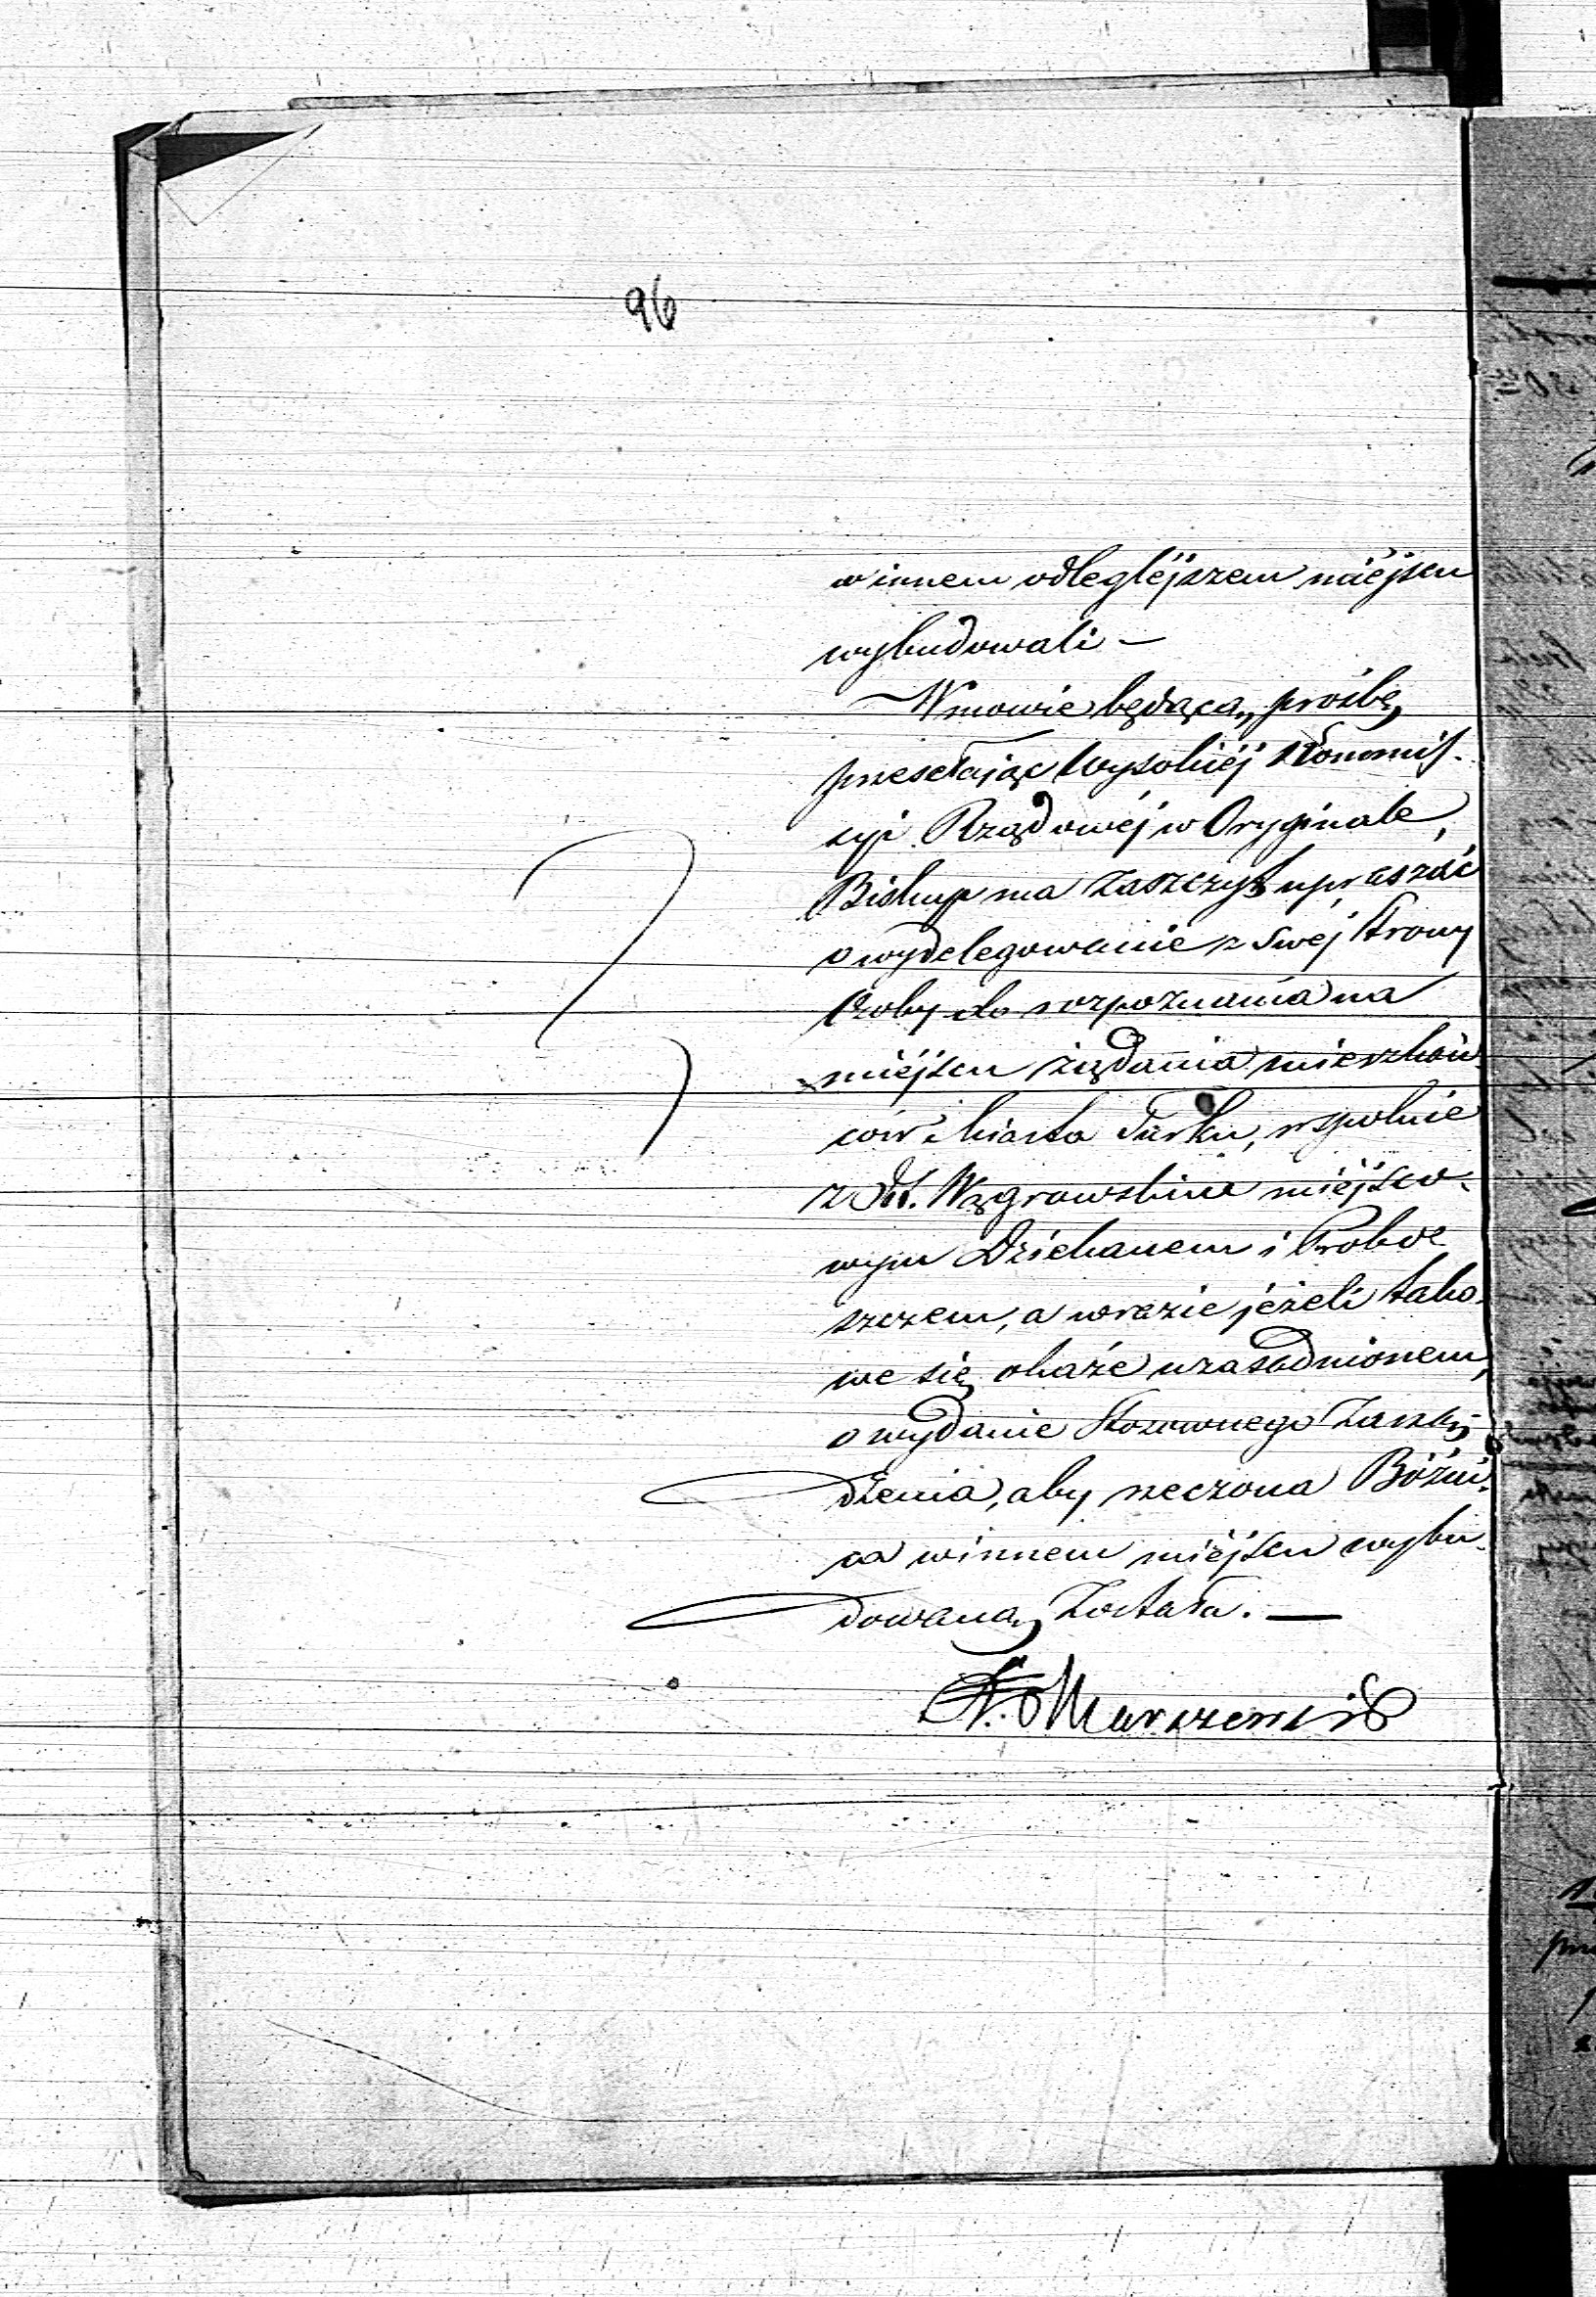 96
w innem odleglejszem miejscu
wybudowali —
W mowie będącą prośbę
przesełając Wysokiej Kommis-
syi Rządowej w Oryginale,
Biskup ma zaszczyt upraszać
o wydelegowanie z swej strony
Osoby do rozpoznania na
miejscu żądania mieszkań-
ców Miasta Turku, wspolnie
z JX. Wągrowskim miejsco-
wym Dziekanem i Probo-
szczem, a w razie jeżeli tako-
we się okaże uzasadnionem,
o wydanie Stosownego Zarzą-
dzenia, aby rzeczona Bóżni-
ca w innem miejscu wybu-
dowaną Została. —
Marszewski